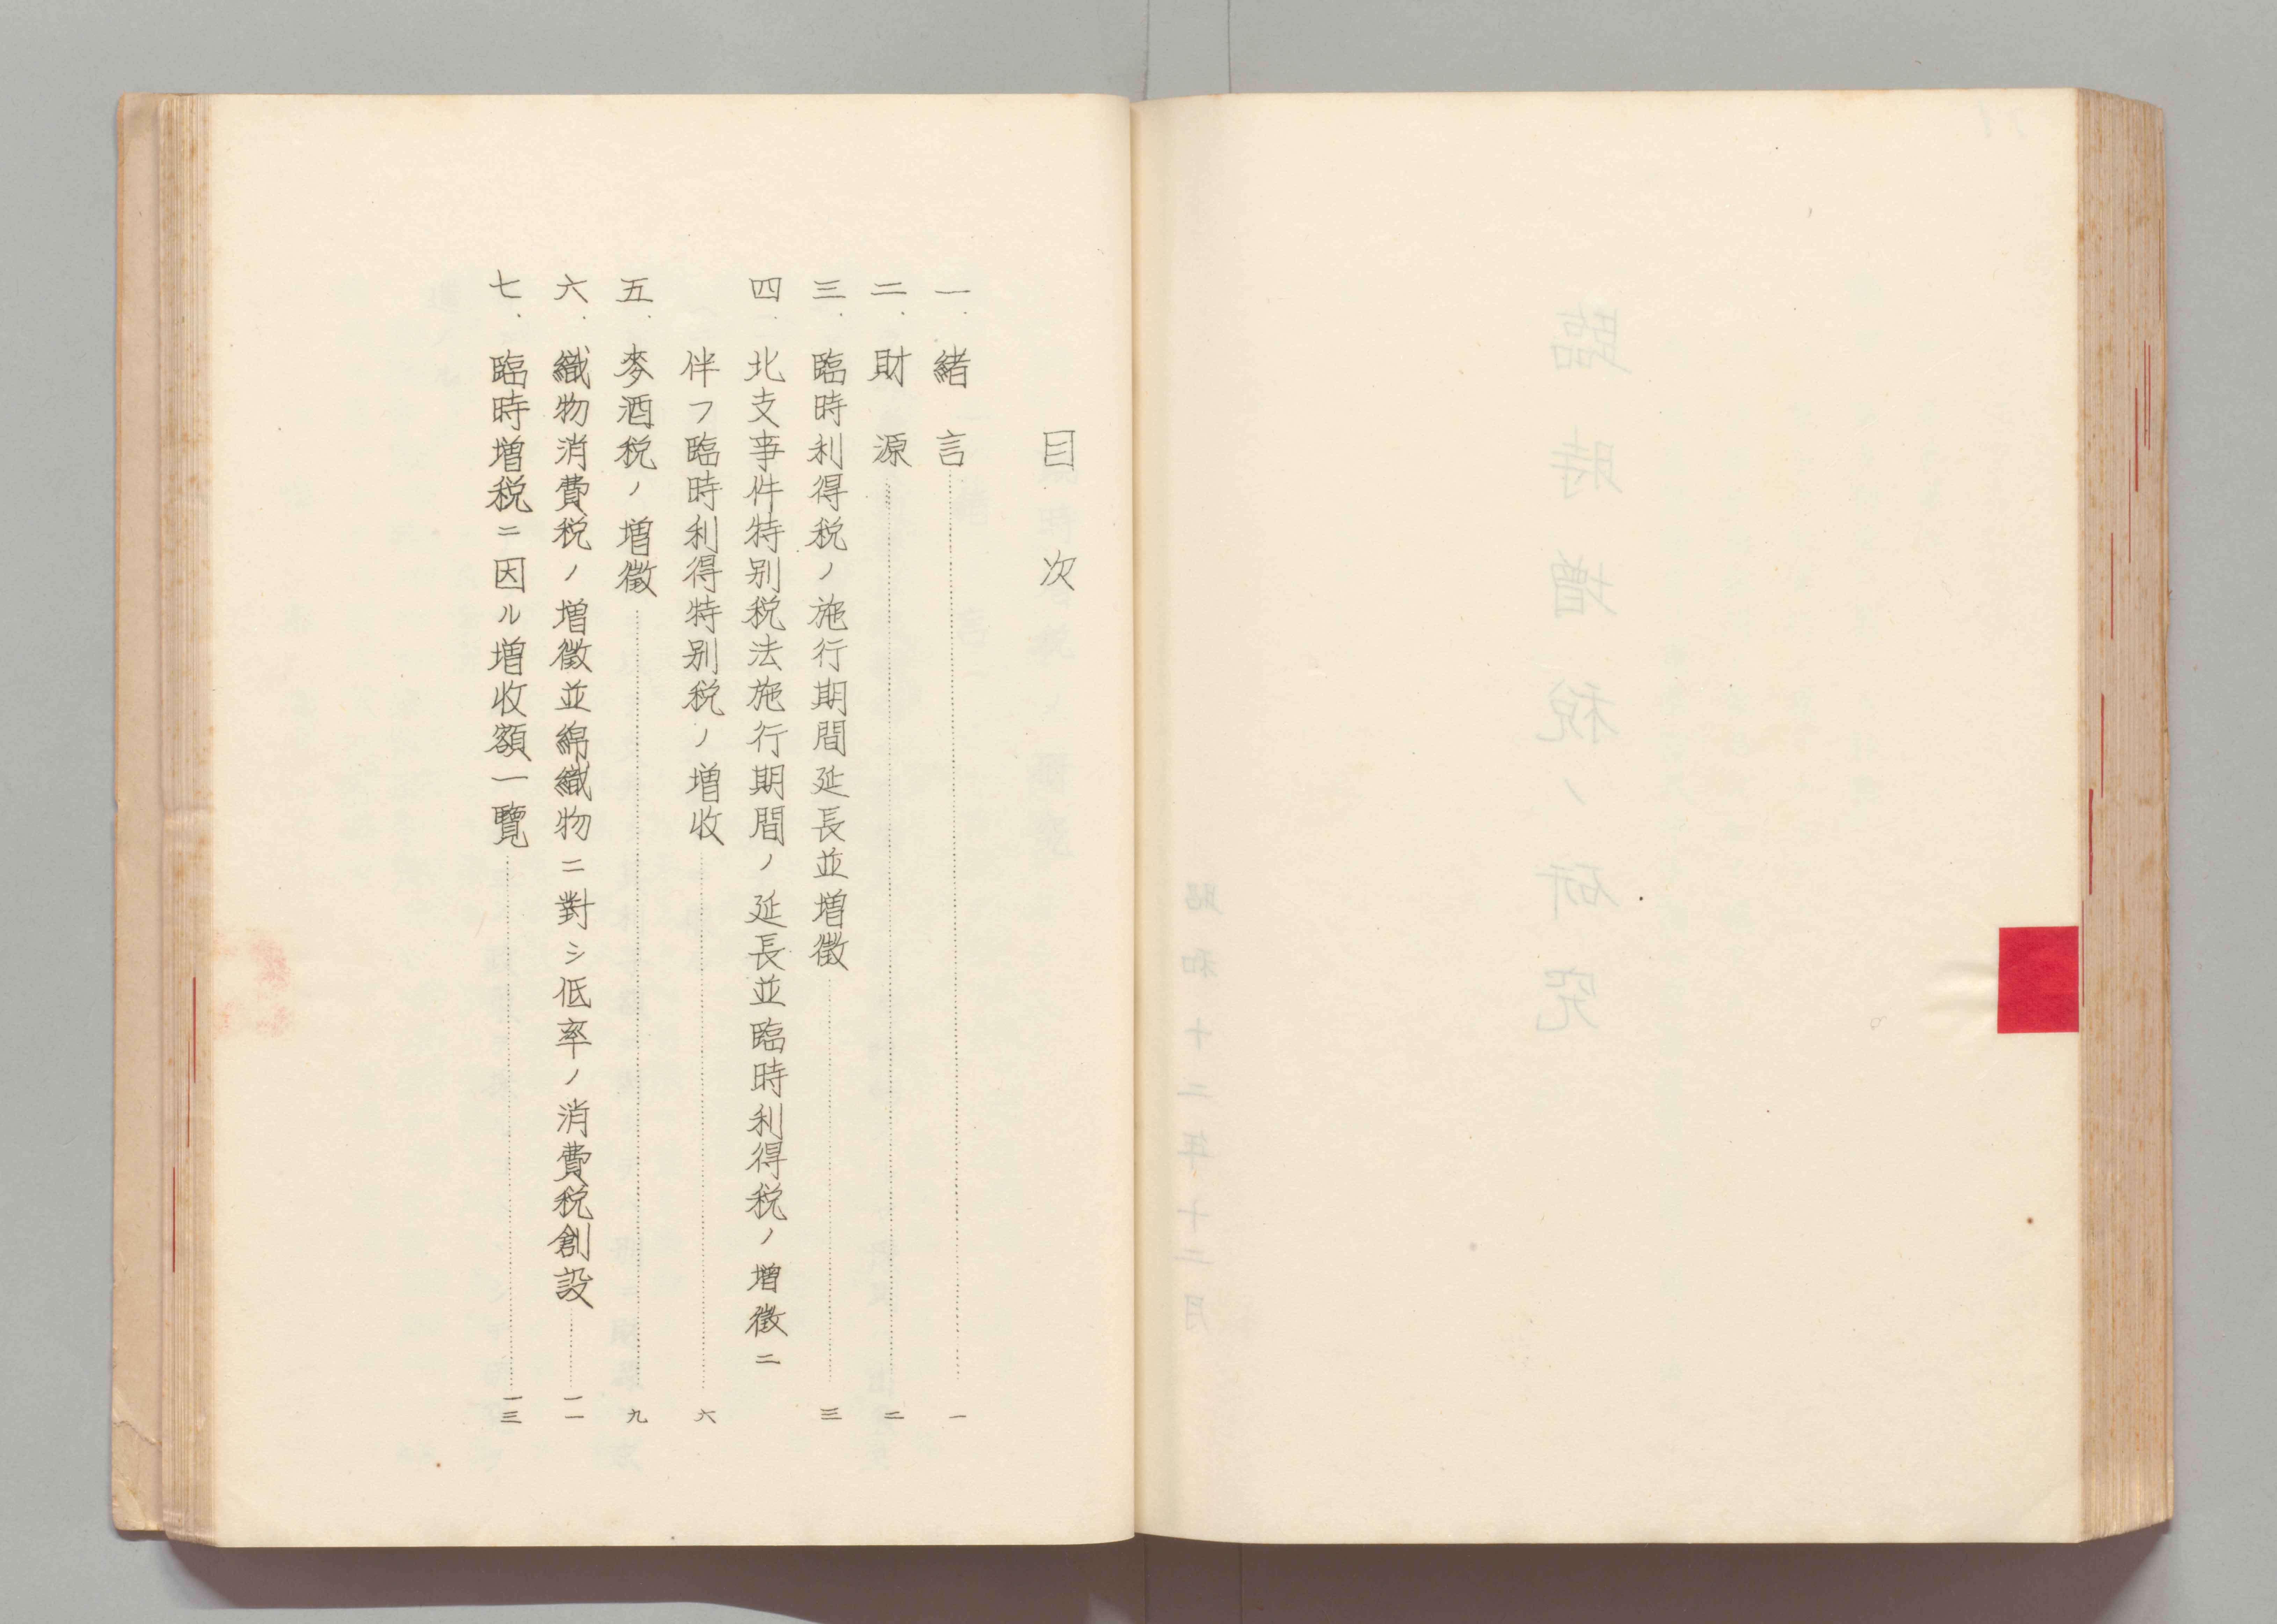 臨時増税ノ研究
昭和十二年十二月
目次
一、緒言……一
二、財源……二
三、臨時利得税ノ施行期間延長並増徴……三
四、北支事件特別税法施行期間ノ延長並臨時利得税ノ増徴ニ
伴フ臨時利得特別税ノ増収……六
五、麥酒税ノ増徴……九
六、織物消費税ノ増徴並綿織物ニ對シ低率ノ消費税創設……一一
七、臨時増税ニ因ル増收額一覽……一三